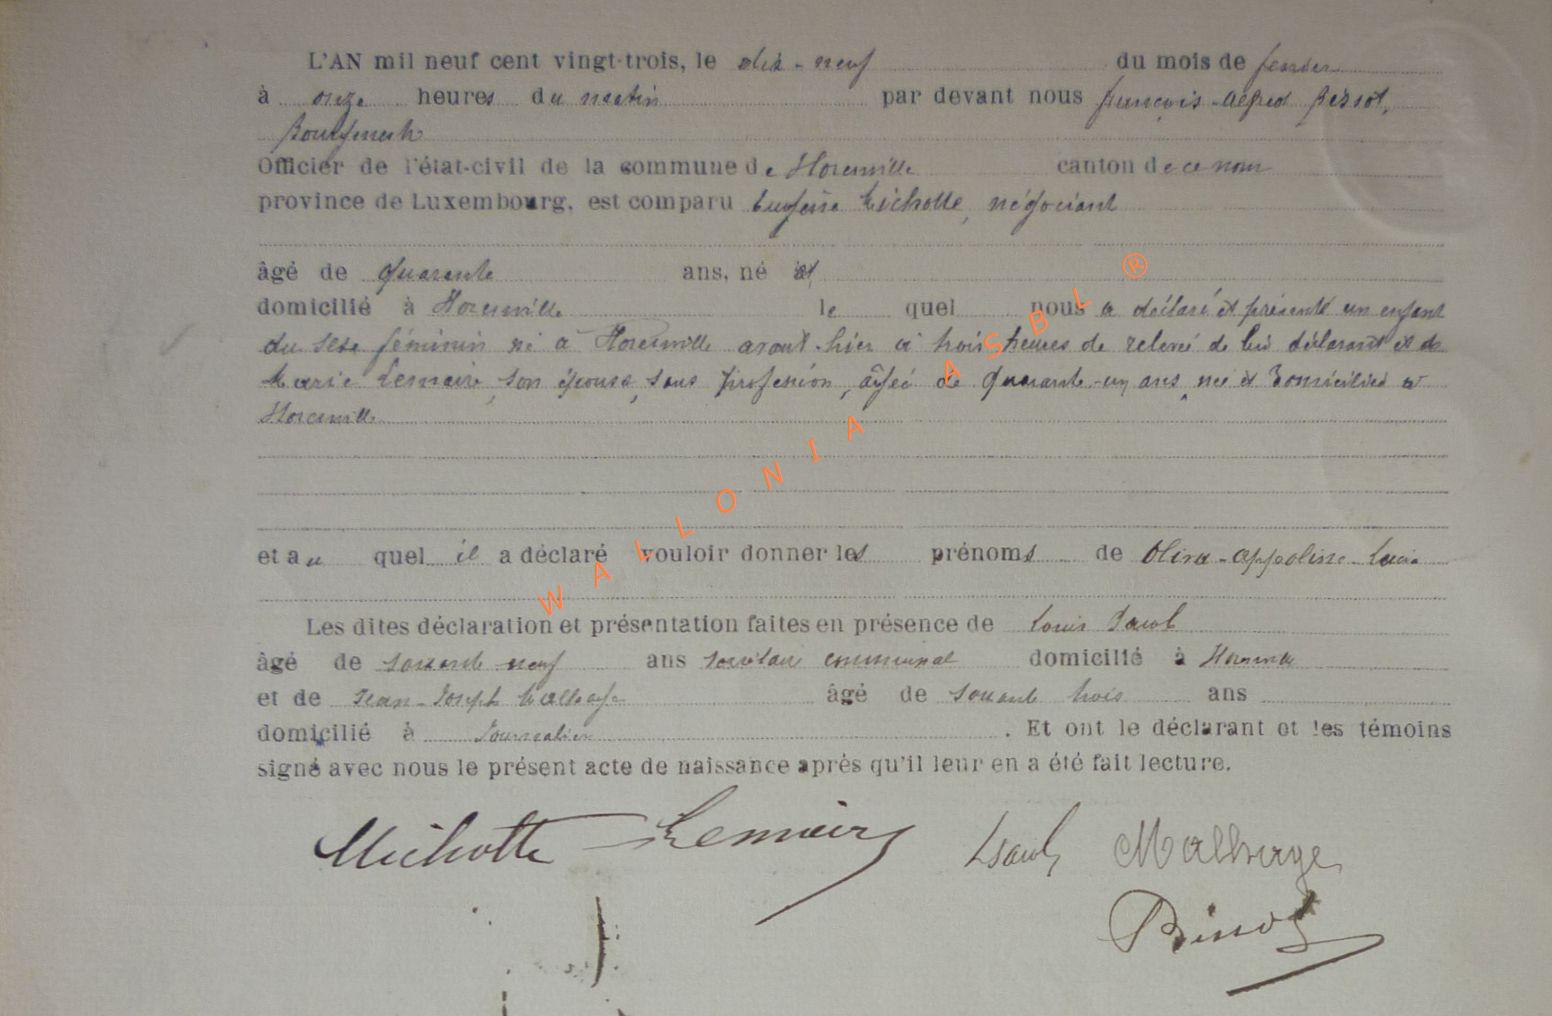 L'AN mil neuf cent vingt-trois, le dix-neuf du mois de fevrier
à onze heures du matin par devant nous françois-Alfred Binsot,
Bourgmestre
Officier de l'état-civil de la commune de Houmville canton de ce nom
province de Luxembourg, est comparu Eugène Michotte, négociant
âgé de quarante ans, né et
domicilié à le quel nous a déclaré et présenté un enfant
du sexe féminin né à avant-hier à trois heures de relevée de lui déclarant et de
Marie Lemaire, son épouse, sans profession, âgée de quarante-un ans, née et domiciliée à
et au quel il a déclaré vouloir donner les prénoms de Oliva-Appoline-Lucie
Les dites déclaration et présentation faites en présence de Louis
âgé de soixante neuf ans secrétaire communal domicilié à
et de Jean-Joseph Malhage âgé de soixante trois ans
domicilié à Journalier . Et ont le déclarant et les témoins
signé avec nous le présent acte de naissance après qu'il leur en a été fait lecture.
Michotte Lemaire Malhage
WALLONIA ASBL ®